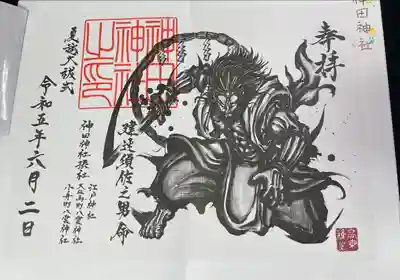 神田神社
奉拝
建速須佐之男命
江戸神社
大伝馬町八雲神社
小舟町八雲神社
神田神社摂社
神田神社之印
夏越大祓式
令和五年六月二日